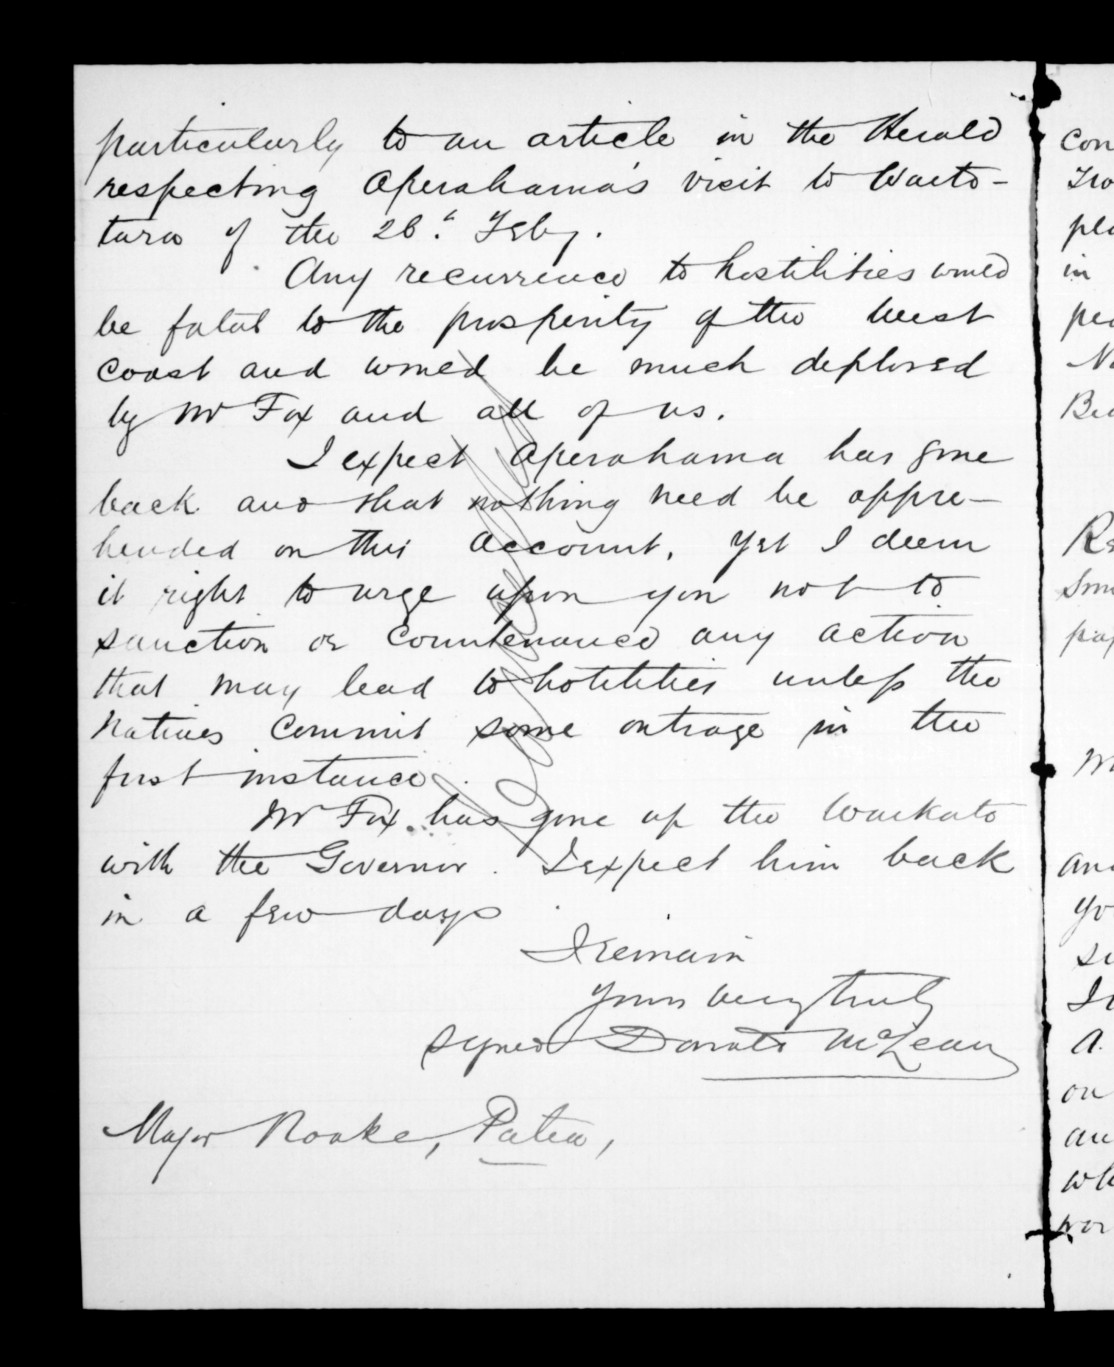 particularly to an article in the Herald
respecting Aperahama's visit to Waito-
tara of the 26th Feby.
Any recurrence to hostilities would
be fatal to the prosperity of the West
Coast and would be much deplored
by Mr Fox and all of us.
I expect Aperahama has gone
back and that nothing need be appre-
hended on this account, yet I deem
it right to urge upon you not to
sanction or countenance any action
that may lead to hotilities unless the
Natives commit some outrage in the
first instance.
Mr Fox has gone up the Waikato
with the Governor. I expect him back
in a few days
I remain
Yours very truly
signed Donald McLean
Major Rooke, Patea,